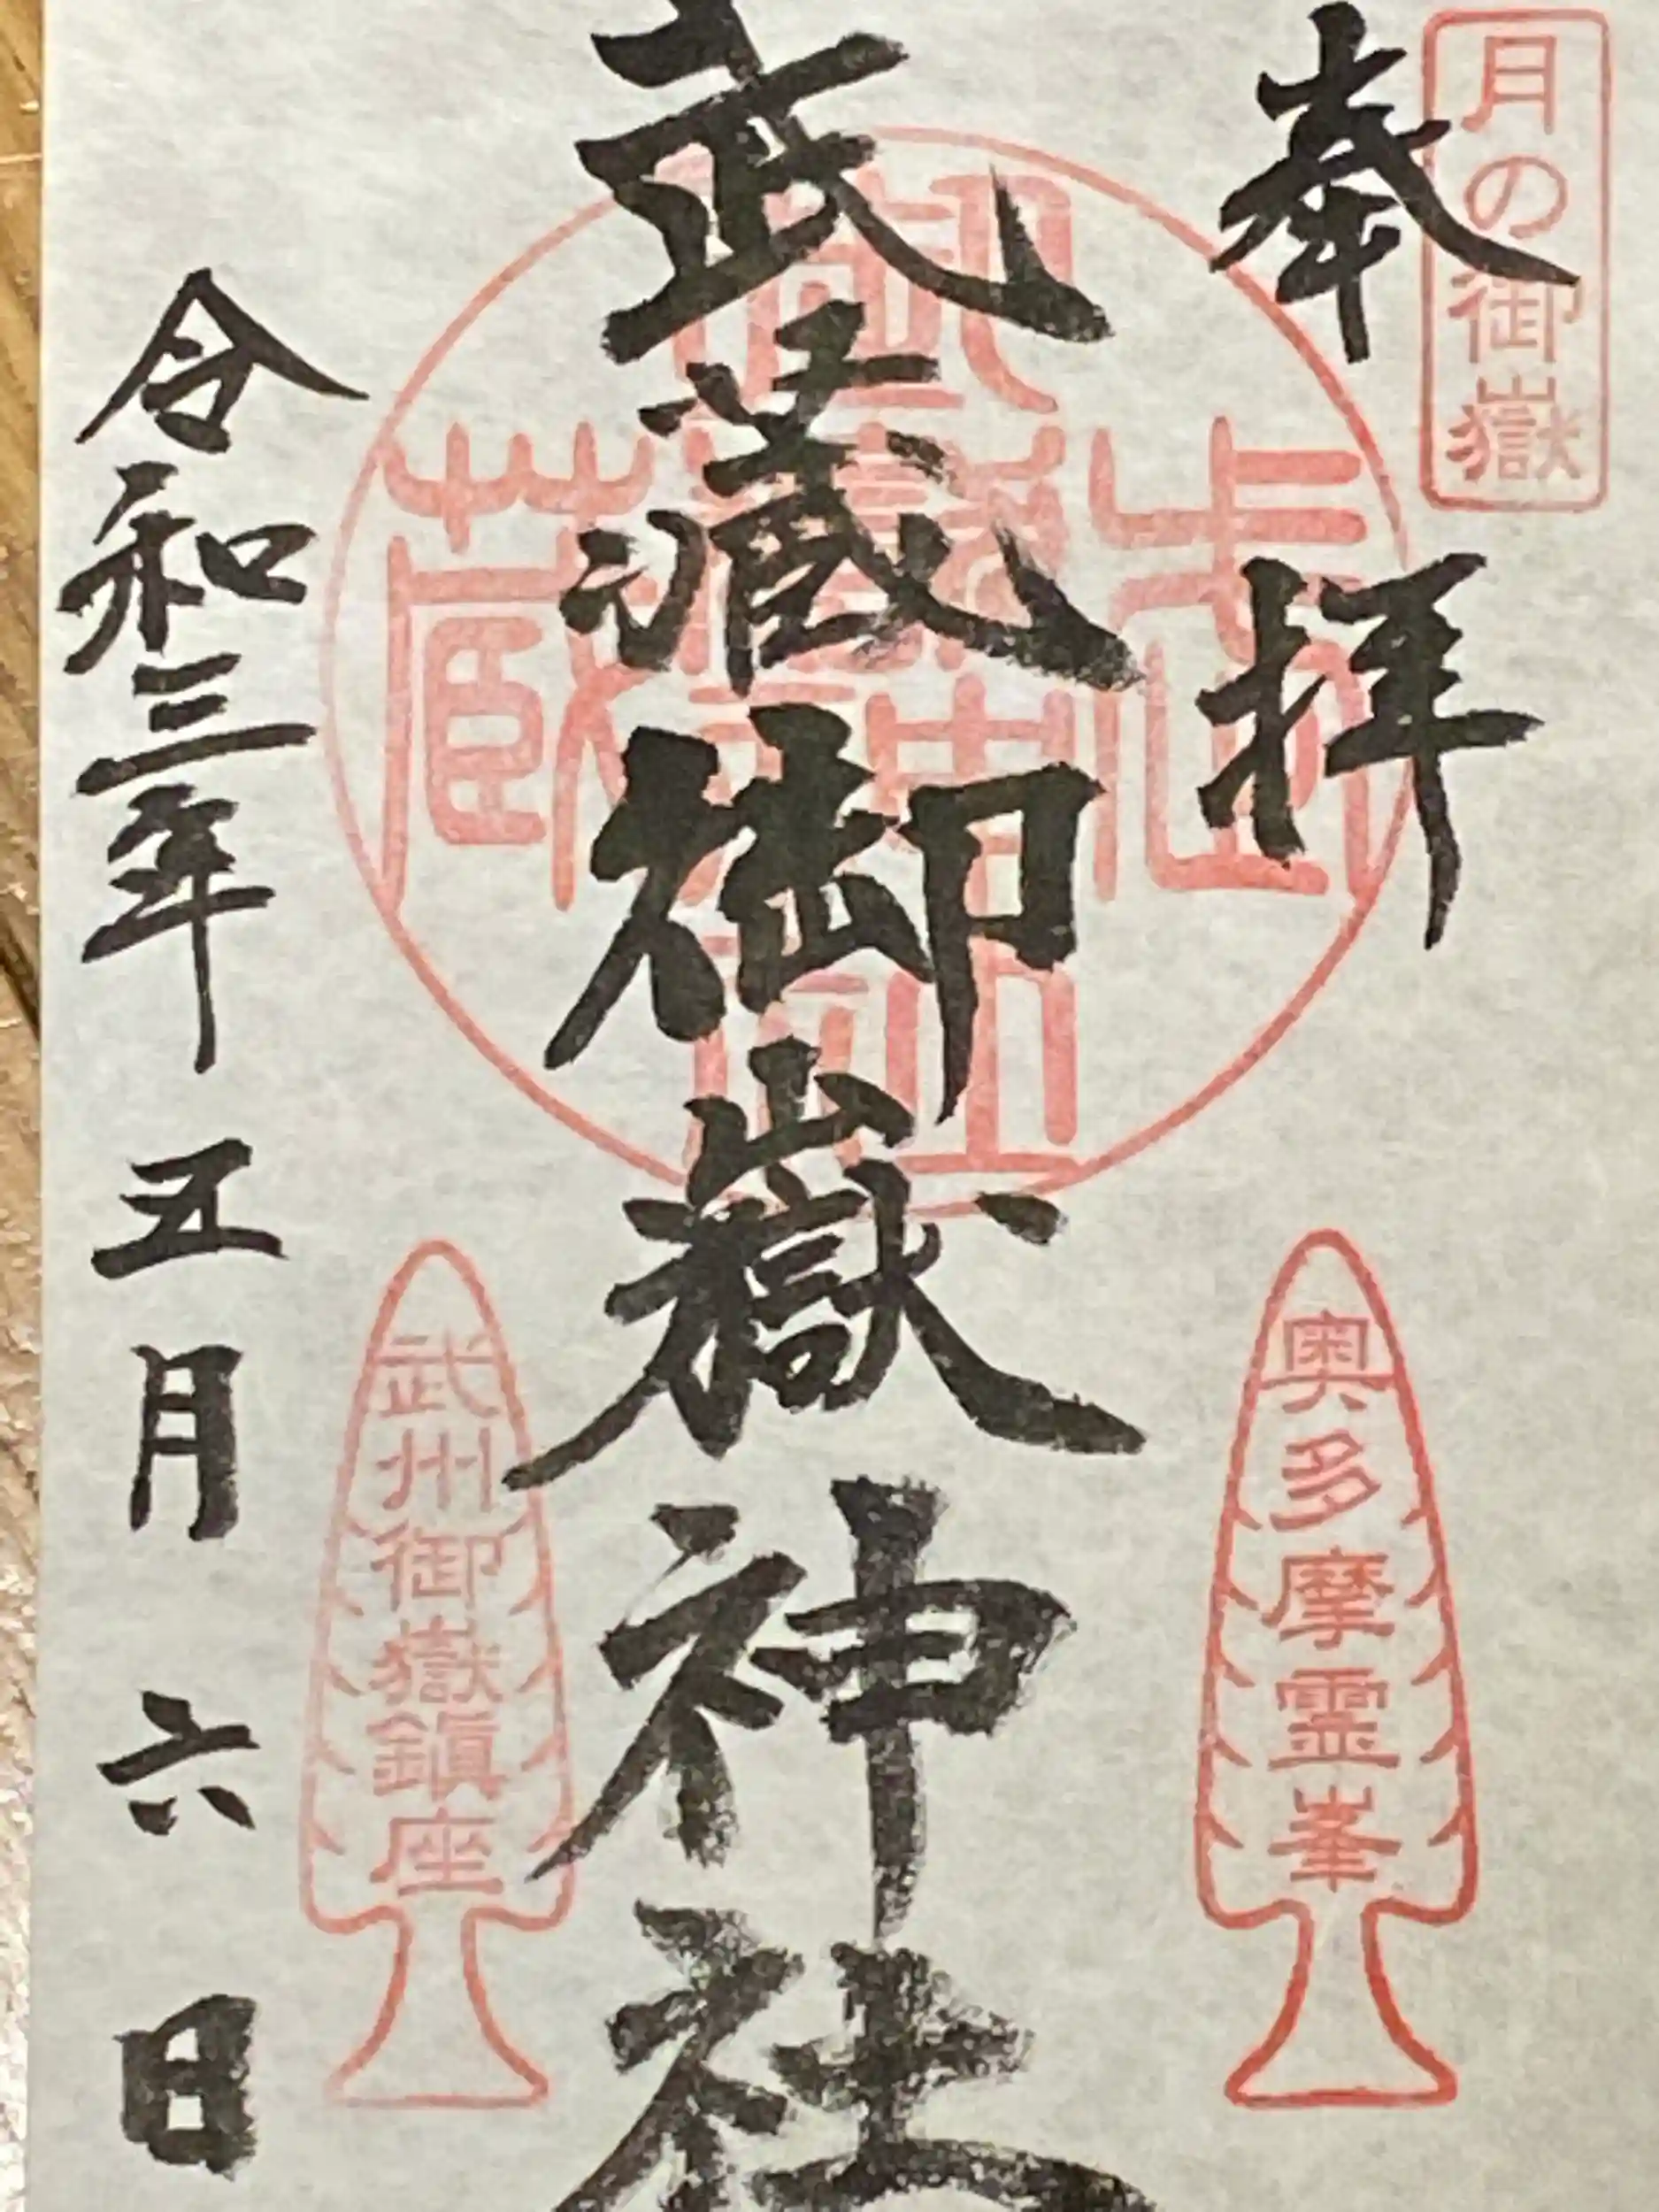 月の御嶽
奉拝
奥多摩霊峯
武蔵御嶽神社
武州御嶽鎮座
令和三年五月六日